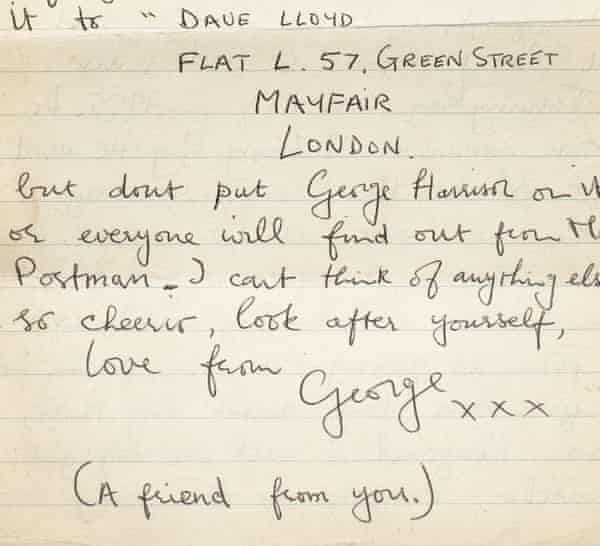 it to " DAVE LLOYD
FLAT L. 57, GREEN STREET
MAYFAIR
LONDON.
but dont put George Harrison on it
or everyone will find out from th
Postman - I cant think of anything els
so cheerio, look after yourself,
love from
George x x x
(A friend from you.)